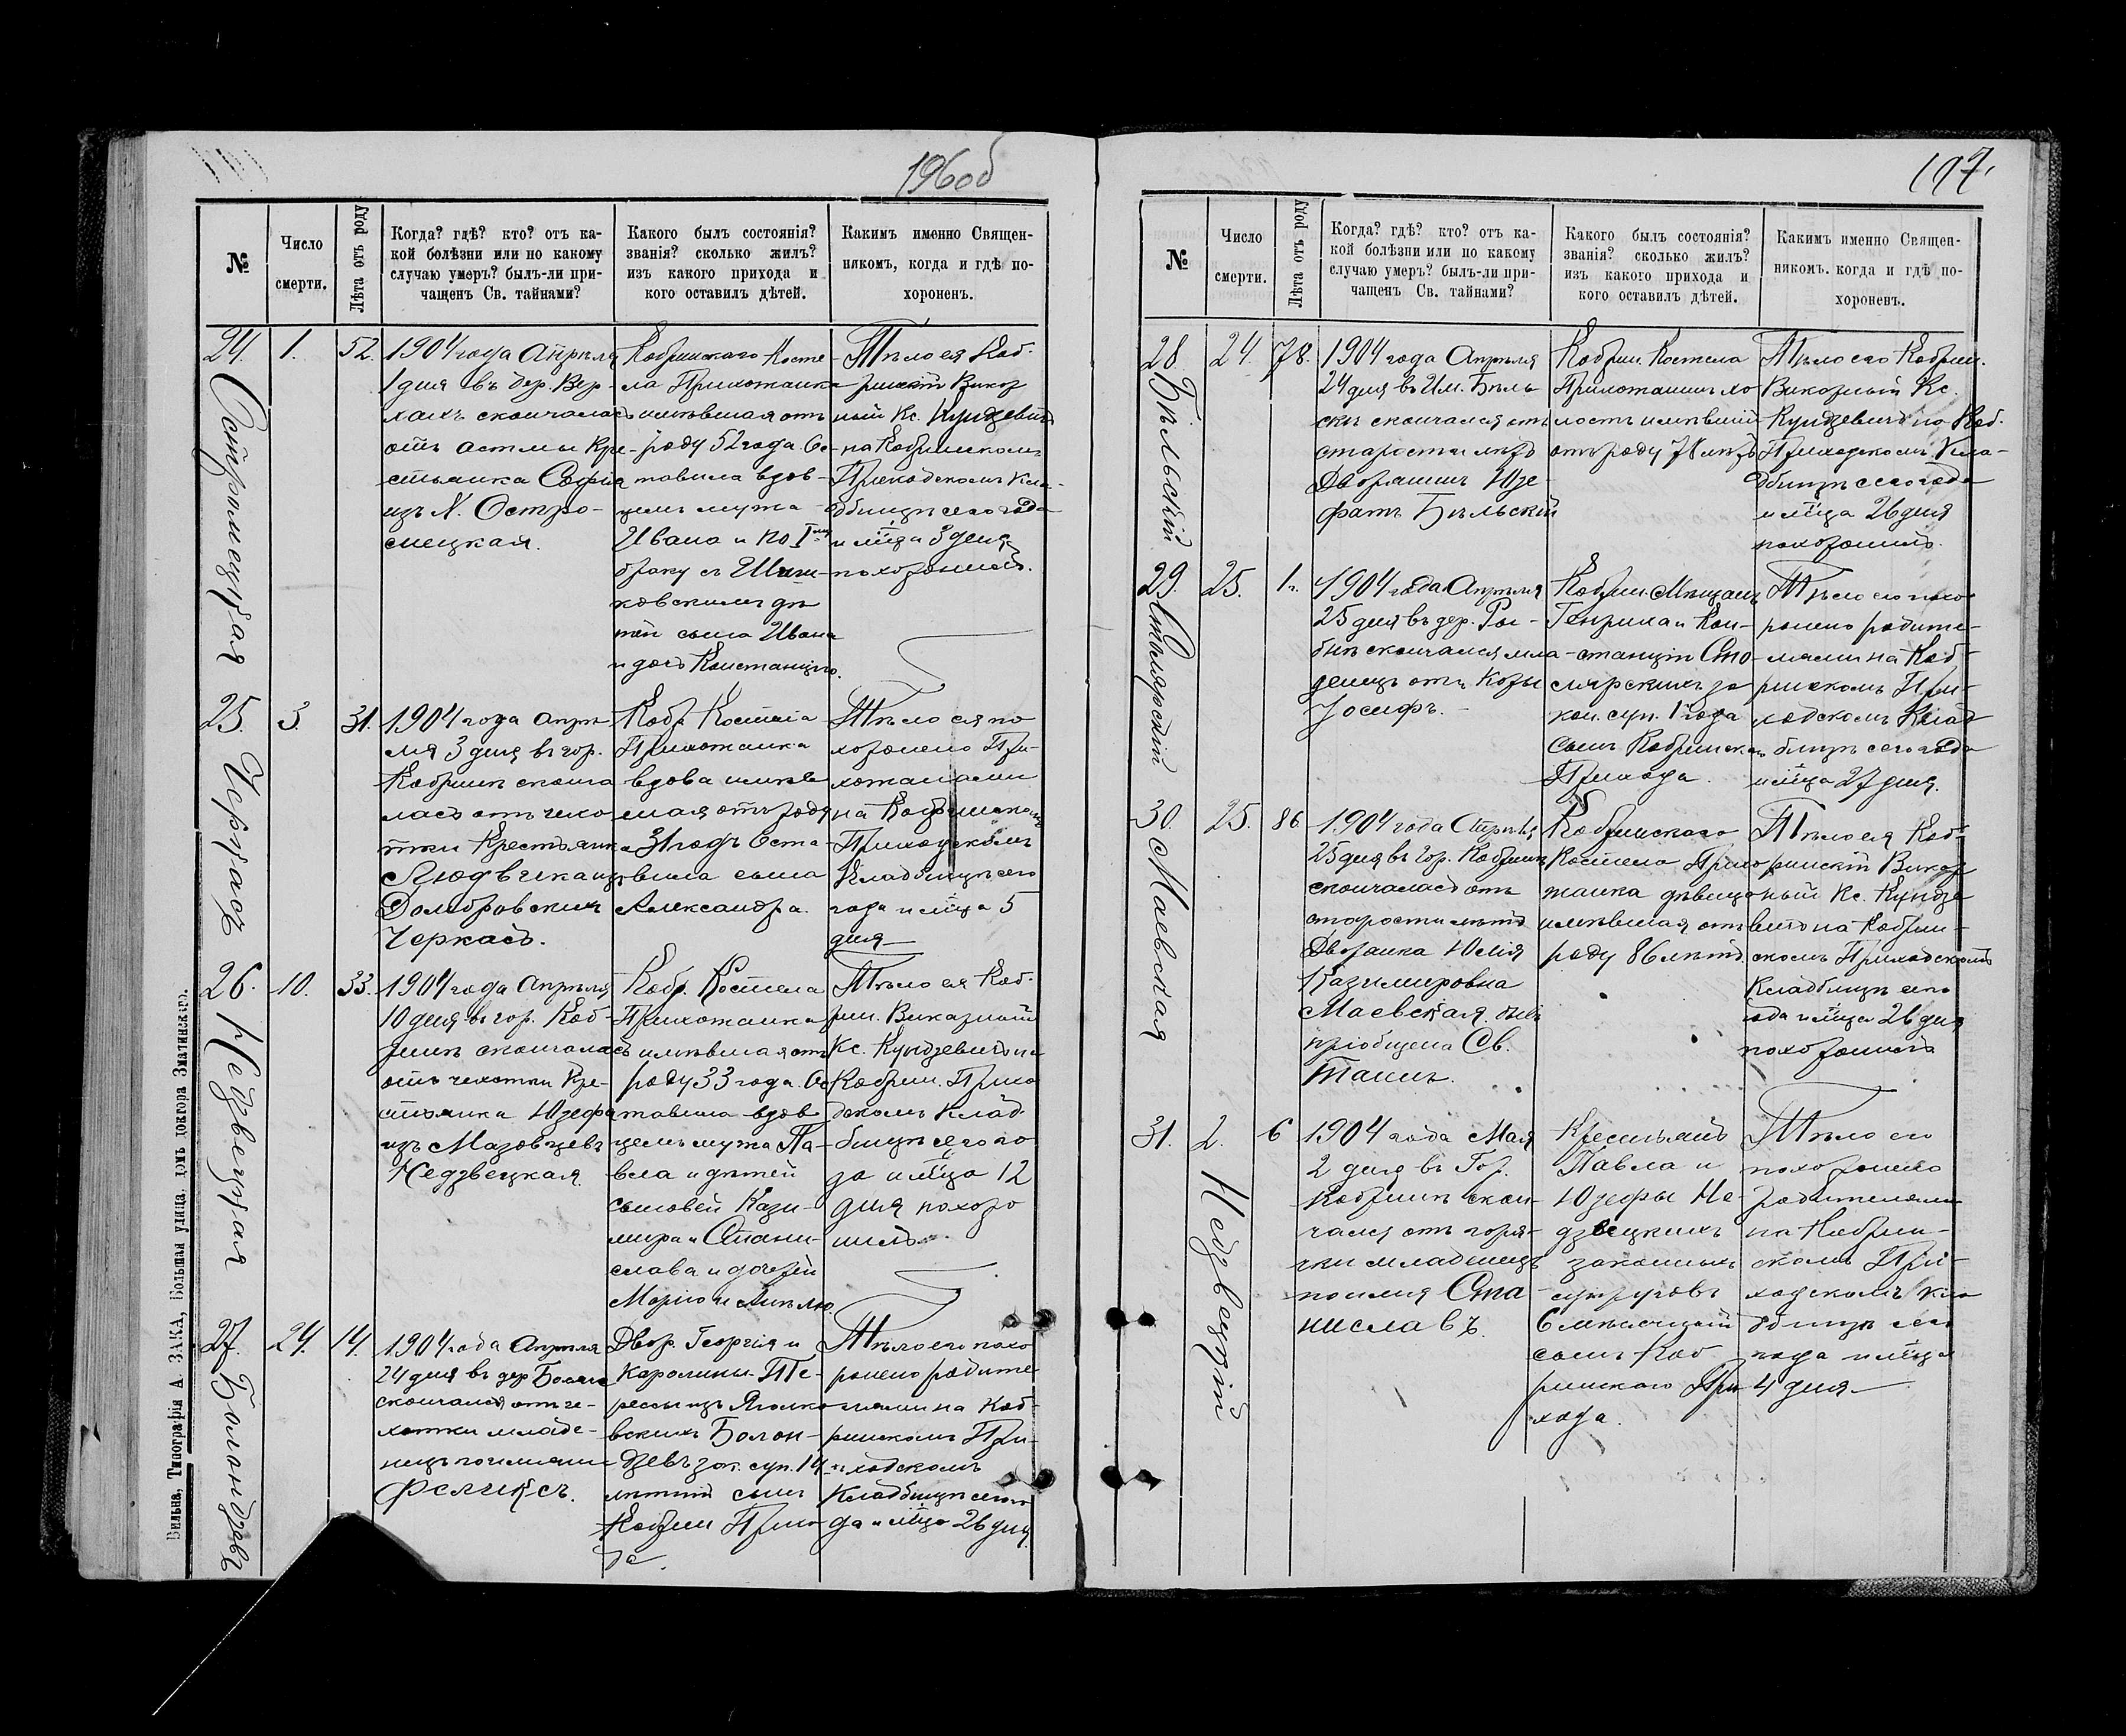 196 об
№
Число
смерти.
Лѣта отъ роду
Когда? гдѣ? кто? отъ ка-
кой болѣзни или по какому
случаю умеръ? былъ-ли при-
чащенъ Св. тайнами?
Какого былъ состоянія?
званія? сколько жилъ?
изъ какого прихода и
кого оставилъ дѣтей.
Какимъ именно Священ-
никомъ, когда и гдѣ по-
хороненъ.
24. Остромецкая
1.
52.
1904 года Апрѣля
1 дня въ дер. Вер-
хахъ скончалась
отъ астмы Кре-
стьянка Софія
изъ N. Остро-
мецкая.
Кобринскаго Косте-
ла Прихожанка
имѣвшая отъ
роду 52 года. Ос-
тавила вдов-
цемъ мужа
Ивана и по I
браку съ
ковскимъ дѣ
тей сына Ивана
и дочь Констанцію.
Тѣло ея Коб-
ринскій Викар
ный Кс. Кундзевичъ
на Кобринскомъ
Приходскомъ Кла-
дбищѣ сего года
и м-ца 3 дня
похоронилъ.
25. Черкасъ
3.
31.
1904 года Апрѣ
ля 3 дня въ гор.
Кобринѣ сконча
лась отъ чахо
тки Крестьянка
Людвика изъ
Домбровскихъ
Черкасъ.
Кобр. Костела
Прихожанка
вдова имѣв
шая отъ роду
31 годъ Оста-
вила сына
Александра.
Тѣло ея по
хоронено При-
хожанами
на Кобринскомъ
Приходскомъ
Кладбищѣ сего
года и м-ца 5
дня
26. Недзвецкая
10.
33.
1904 года Апрѣля
10 дня въ гор. Коб-
ринѣ скончалась
отъ чахотки Кре-
стьянка Юзефа
изъ Мазовцевъ
Недзвецкая
Кобр. Костела
Прихожанка
имѣвшая отъ
роду 33 года. Ос
тавила вдов
цемъ мужа Па-
вла и дѣтей
сыновей Кази-
мира и Стани-
слава и дочерей
Марію и
Тѣло ея Коб-
рин. Викарный
Кс. Кундзевичъ на
Кобрин. Прихо
дскомъ Клад-
бищѣ сего го
да и м-ца 12
дня похоро
нилъ.
27. Болондзевъ
24.
14.
1904 года Апрѣля
24 дня въ дер.
скончался отъ ча-
хотки младе-
нецъ по имени
Феликсъ.
Двор. Георгія и
Каролины-Те-
рессы изъ
вскихъ Болон-
дзевъ зак. суп. 14
лѣтній сынъ
Кобрин Прихо
да.
Тѣло его похо
ронено родите-
лями на Коб-
ринскомъ При-
ходскомъ
Кладбищѣ сего го
да и м-ца 26 дня
Вильна, Типографія А. ЗАКА, Большая улица, домъ доктора Зматинскаго.
197.
№
Число
смерти.
Лѣта отъ роду
Когда? гдѣ? кто? отъ ка-
кой болѣзни или по какому
случаю умеръ? былъ-ли при-
чащенъ Св. тайнами?
Какого былъ состоянія?
званія? сколько жилъ?
изъ какого прихода и
кого оставилъ дѣтей.
Какимъ именно Священ-
никомъ. когда и гдѣ по-
хороненъ.
28. Бѣльскій
24.
78.
1904 года Апрѣля
24 дня въ Им. Бѣль
скѣ скончался отъ
старости лѣтъ
Дворянинъ Юзе-
фатъ Бѣльскій
Кобрин. Костела
Прихожанинъ хо
лостъ имѣвшій
отъ роду 78 лѣтъ
Тѣло его Кобрин.
Викарный Кс.
Кундзевичъ на Коб.
Приходскомъ Кла-
дбищѣ сего года
и м-ца 26 дня
похоронилъ.
29. Столярскій
25.
1 г.
1904 года Апрѣля
25 дня въ дер. Ры-
бнѣ скончался мла-
денецъ отъ Коры
Іосифъ.
Кобрин. Мѣщанъ
Генриха и Кон-
станціи Сто-
лярскихъ за
кон. суп. 1 года
сынъ Кобринска
Прихода.
Тѣло его похо
ронено родите-
лями на Коб-
ринскомъ При-
ходскомъ Клад
бищѣ сего года
и м-ца 27 дня.
30. Маевская
25.
86
1904 года Апрѣля
25 дня въ гор. Кобринѣ
скончалась отъ
старости лѣтъ
Дворянка Юлія
Казимировна
Маевская. бывъ
пріобщена Св.
Таинъ.
Кобринскаго
Костела Прихо
жанка дѣвица
имѣвшая отъ
роду 86 лѣтъ.
Тѣло ея Коб-
ринскій Викар
ный Кс. Кундзе
вичъ на Кобрин-
скомъ Приходскомъ
Кладбищѣ сего
года и м-ца 26 дня
похоронилъ
31. Недзвецкій
2.
6
1904 года Мая
2 дня въ Гор.
Кобринѣ скон-
чался отъ горя-
чки младенецъ
по имя Ста
ниславъ.
Крестьянъ
Павла и
Юзефы Не-
дзвецкихъ
законныхъ
супруговъ
6 мѣсячный
сынъ Коб
ринскаго При
хода.
Тѣло его
похоронено
родителями
на Кобрин-
скомъ При-
ходскомъ Кла
дбищѣ сего
года и м-ца
4 дня